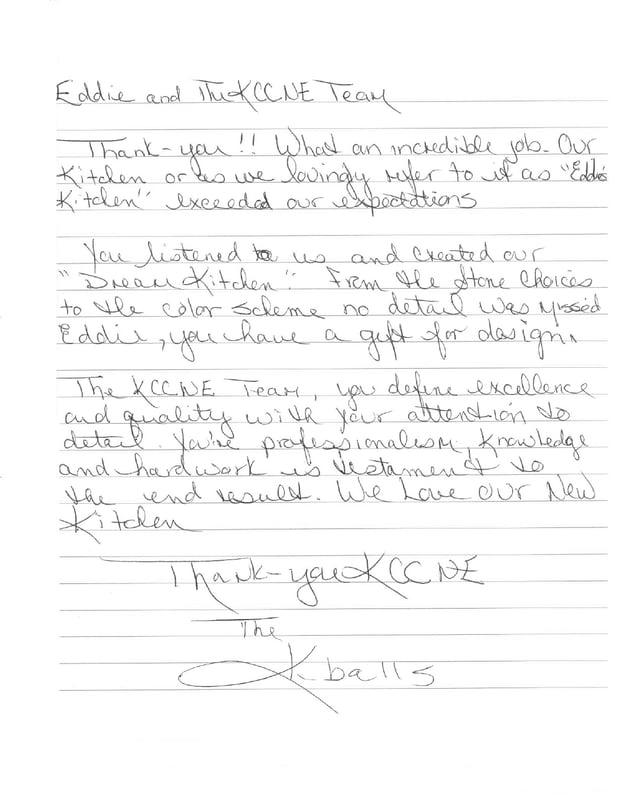 Eddie and The KCCNE Team
Thank-you!! What an incredible job. Our
Kitchen or as we lovingly refer to it as "Eddie's
Kitchen" exceeded our expectations
You listened to us and created our
"Dream Kitchen". From the Stone Choices
to the color scheme no detail was missed
Eddie, you have a gift for design.
The KCCNE Team, you define excellence
and quality with your attention to
detail. You're professionalism, Knowledge
and hardwork is testament to
the end result. We Love our New
Kitchen
Thank-you KCCNE
The
Kballs